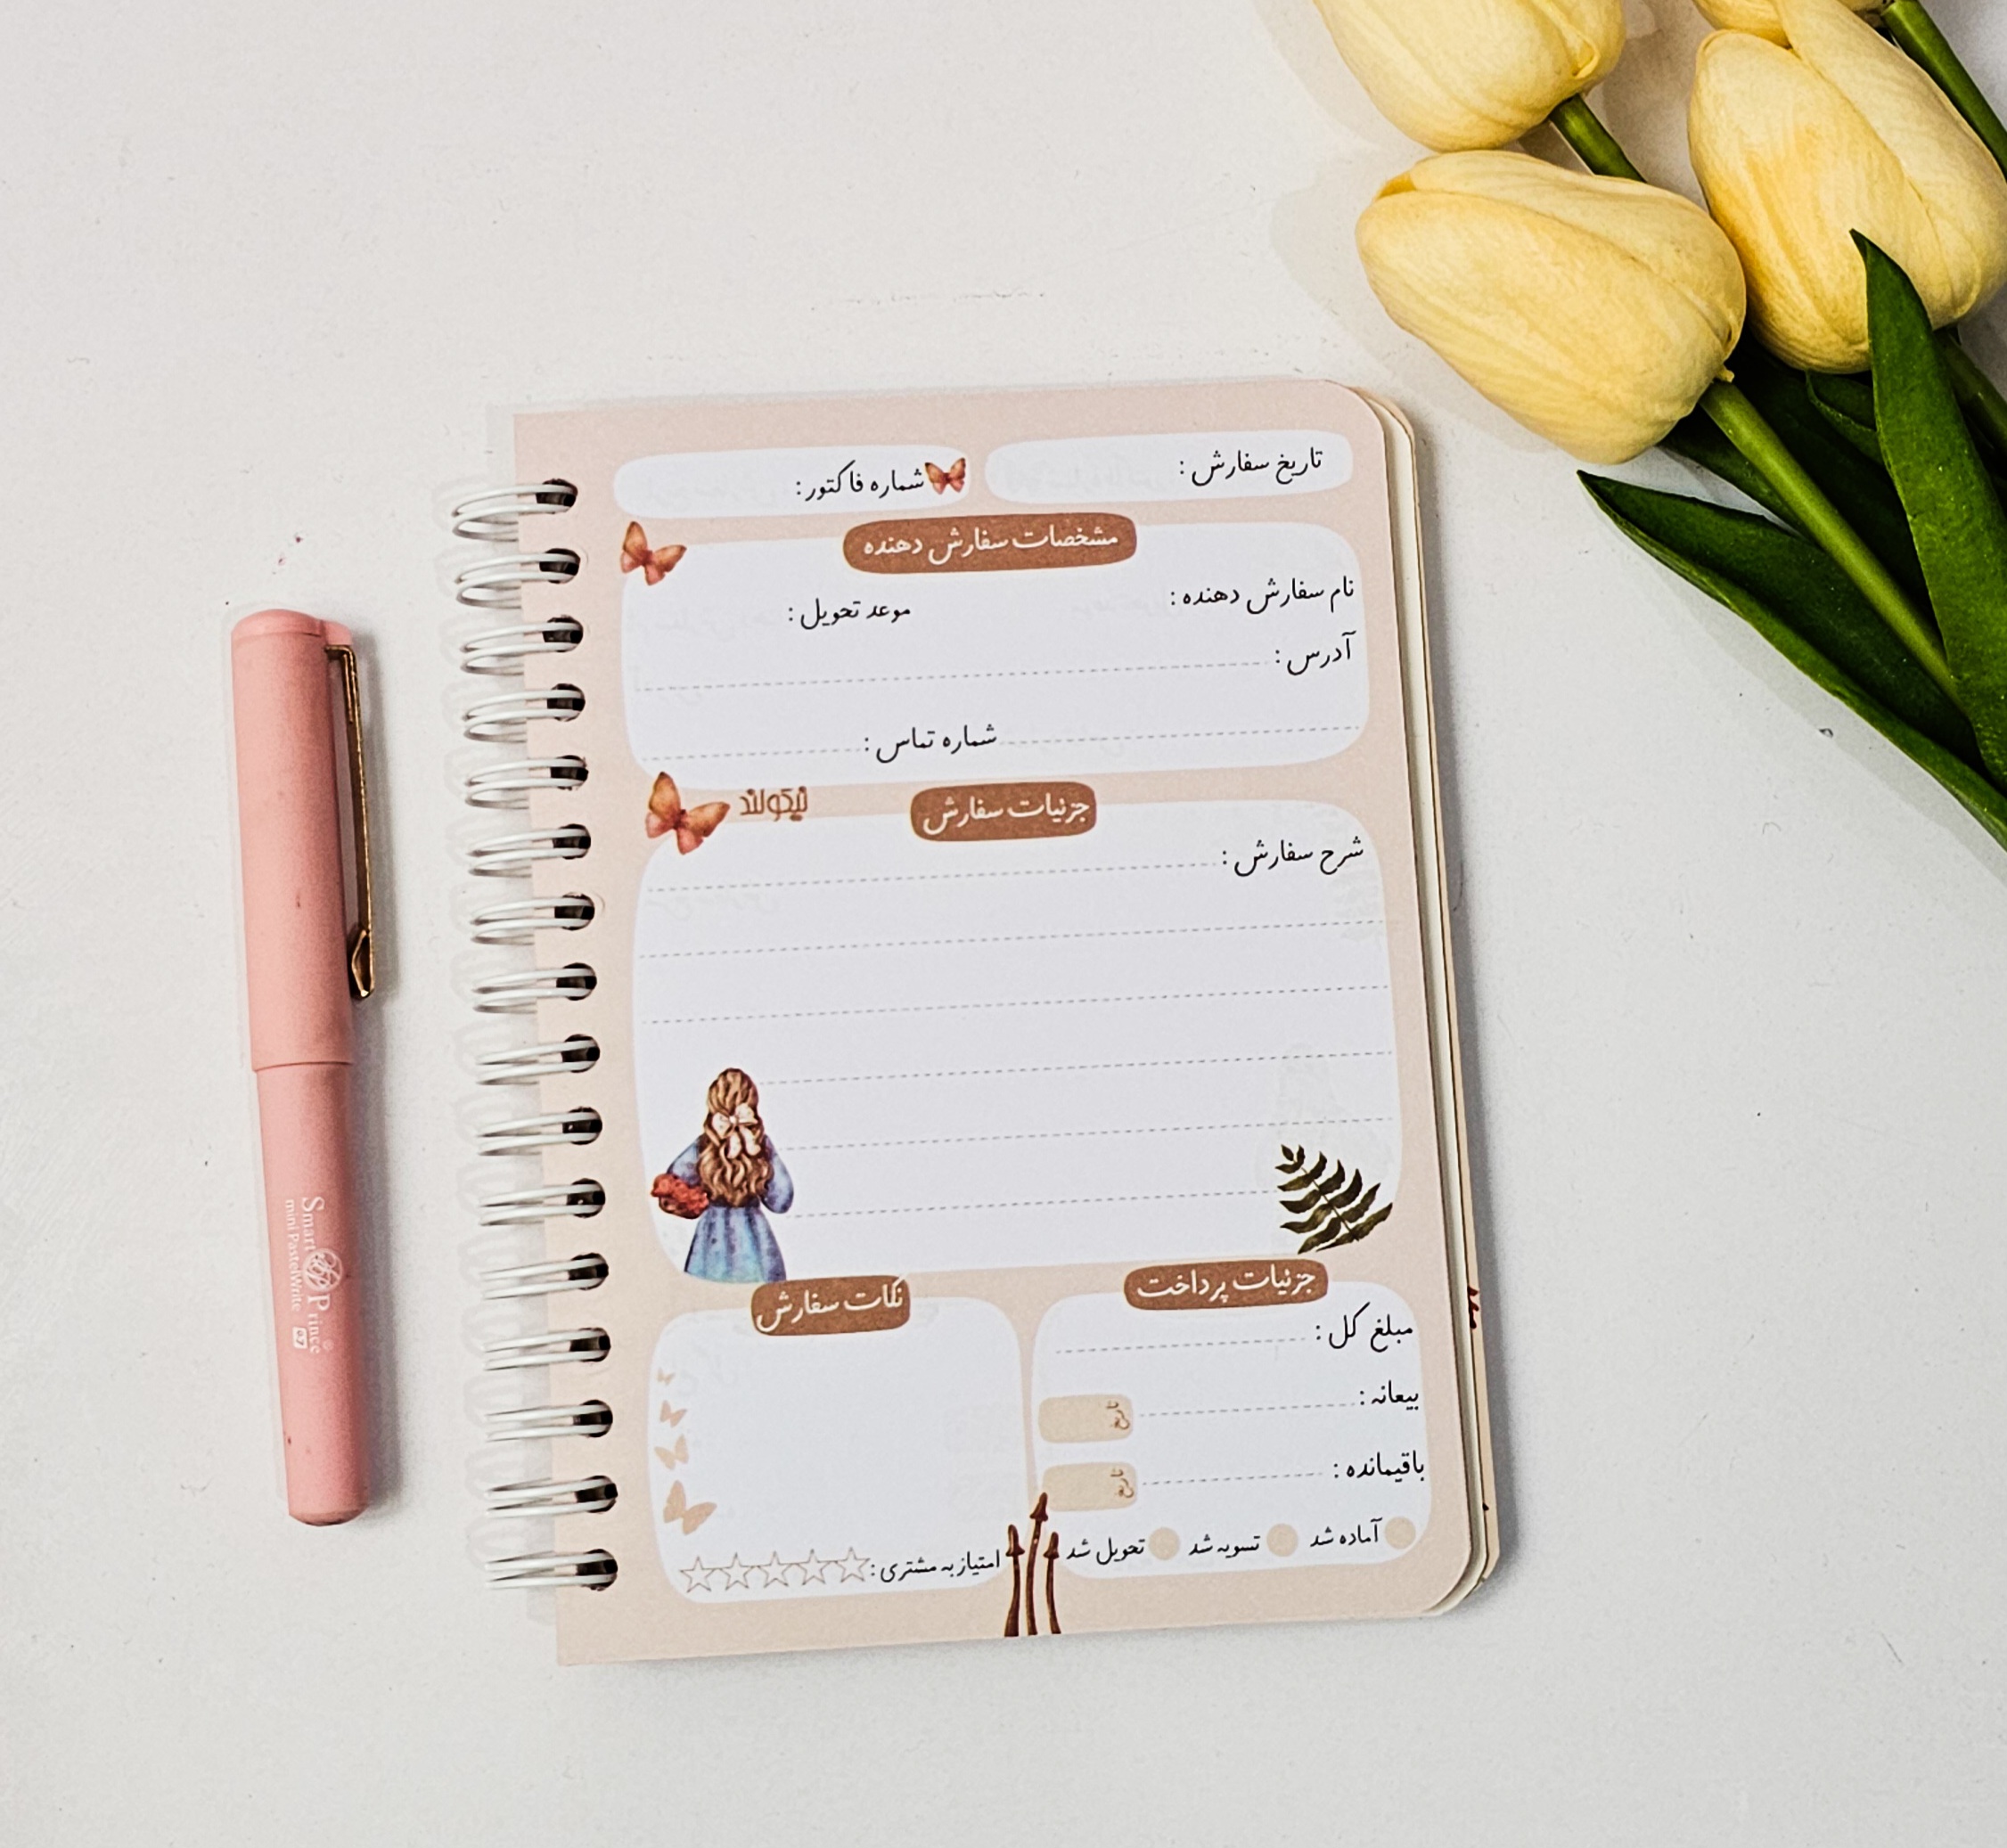 تاریخ سفارش :
شماره فاکتور :
مشخصات سفارش دهنده
نام سفارش دهنده :
موعد تحویل :
آدرس :
شماره تماس :
جزئیات سفارش
نیکولند
شرح سفارش :
جزئیات پرداخت
مبلغ کل :
بیعانه :
تاریخ
باقیمانده :
تاریخ
آماده شد
تسویه شد
تحویل شد
نکات سفارش
امتیاز به مشتری :
Smart Prince
mini PastelWrite 0.7